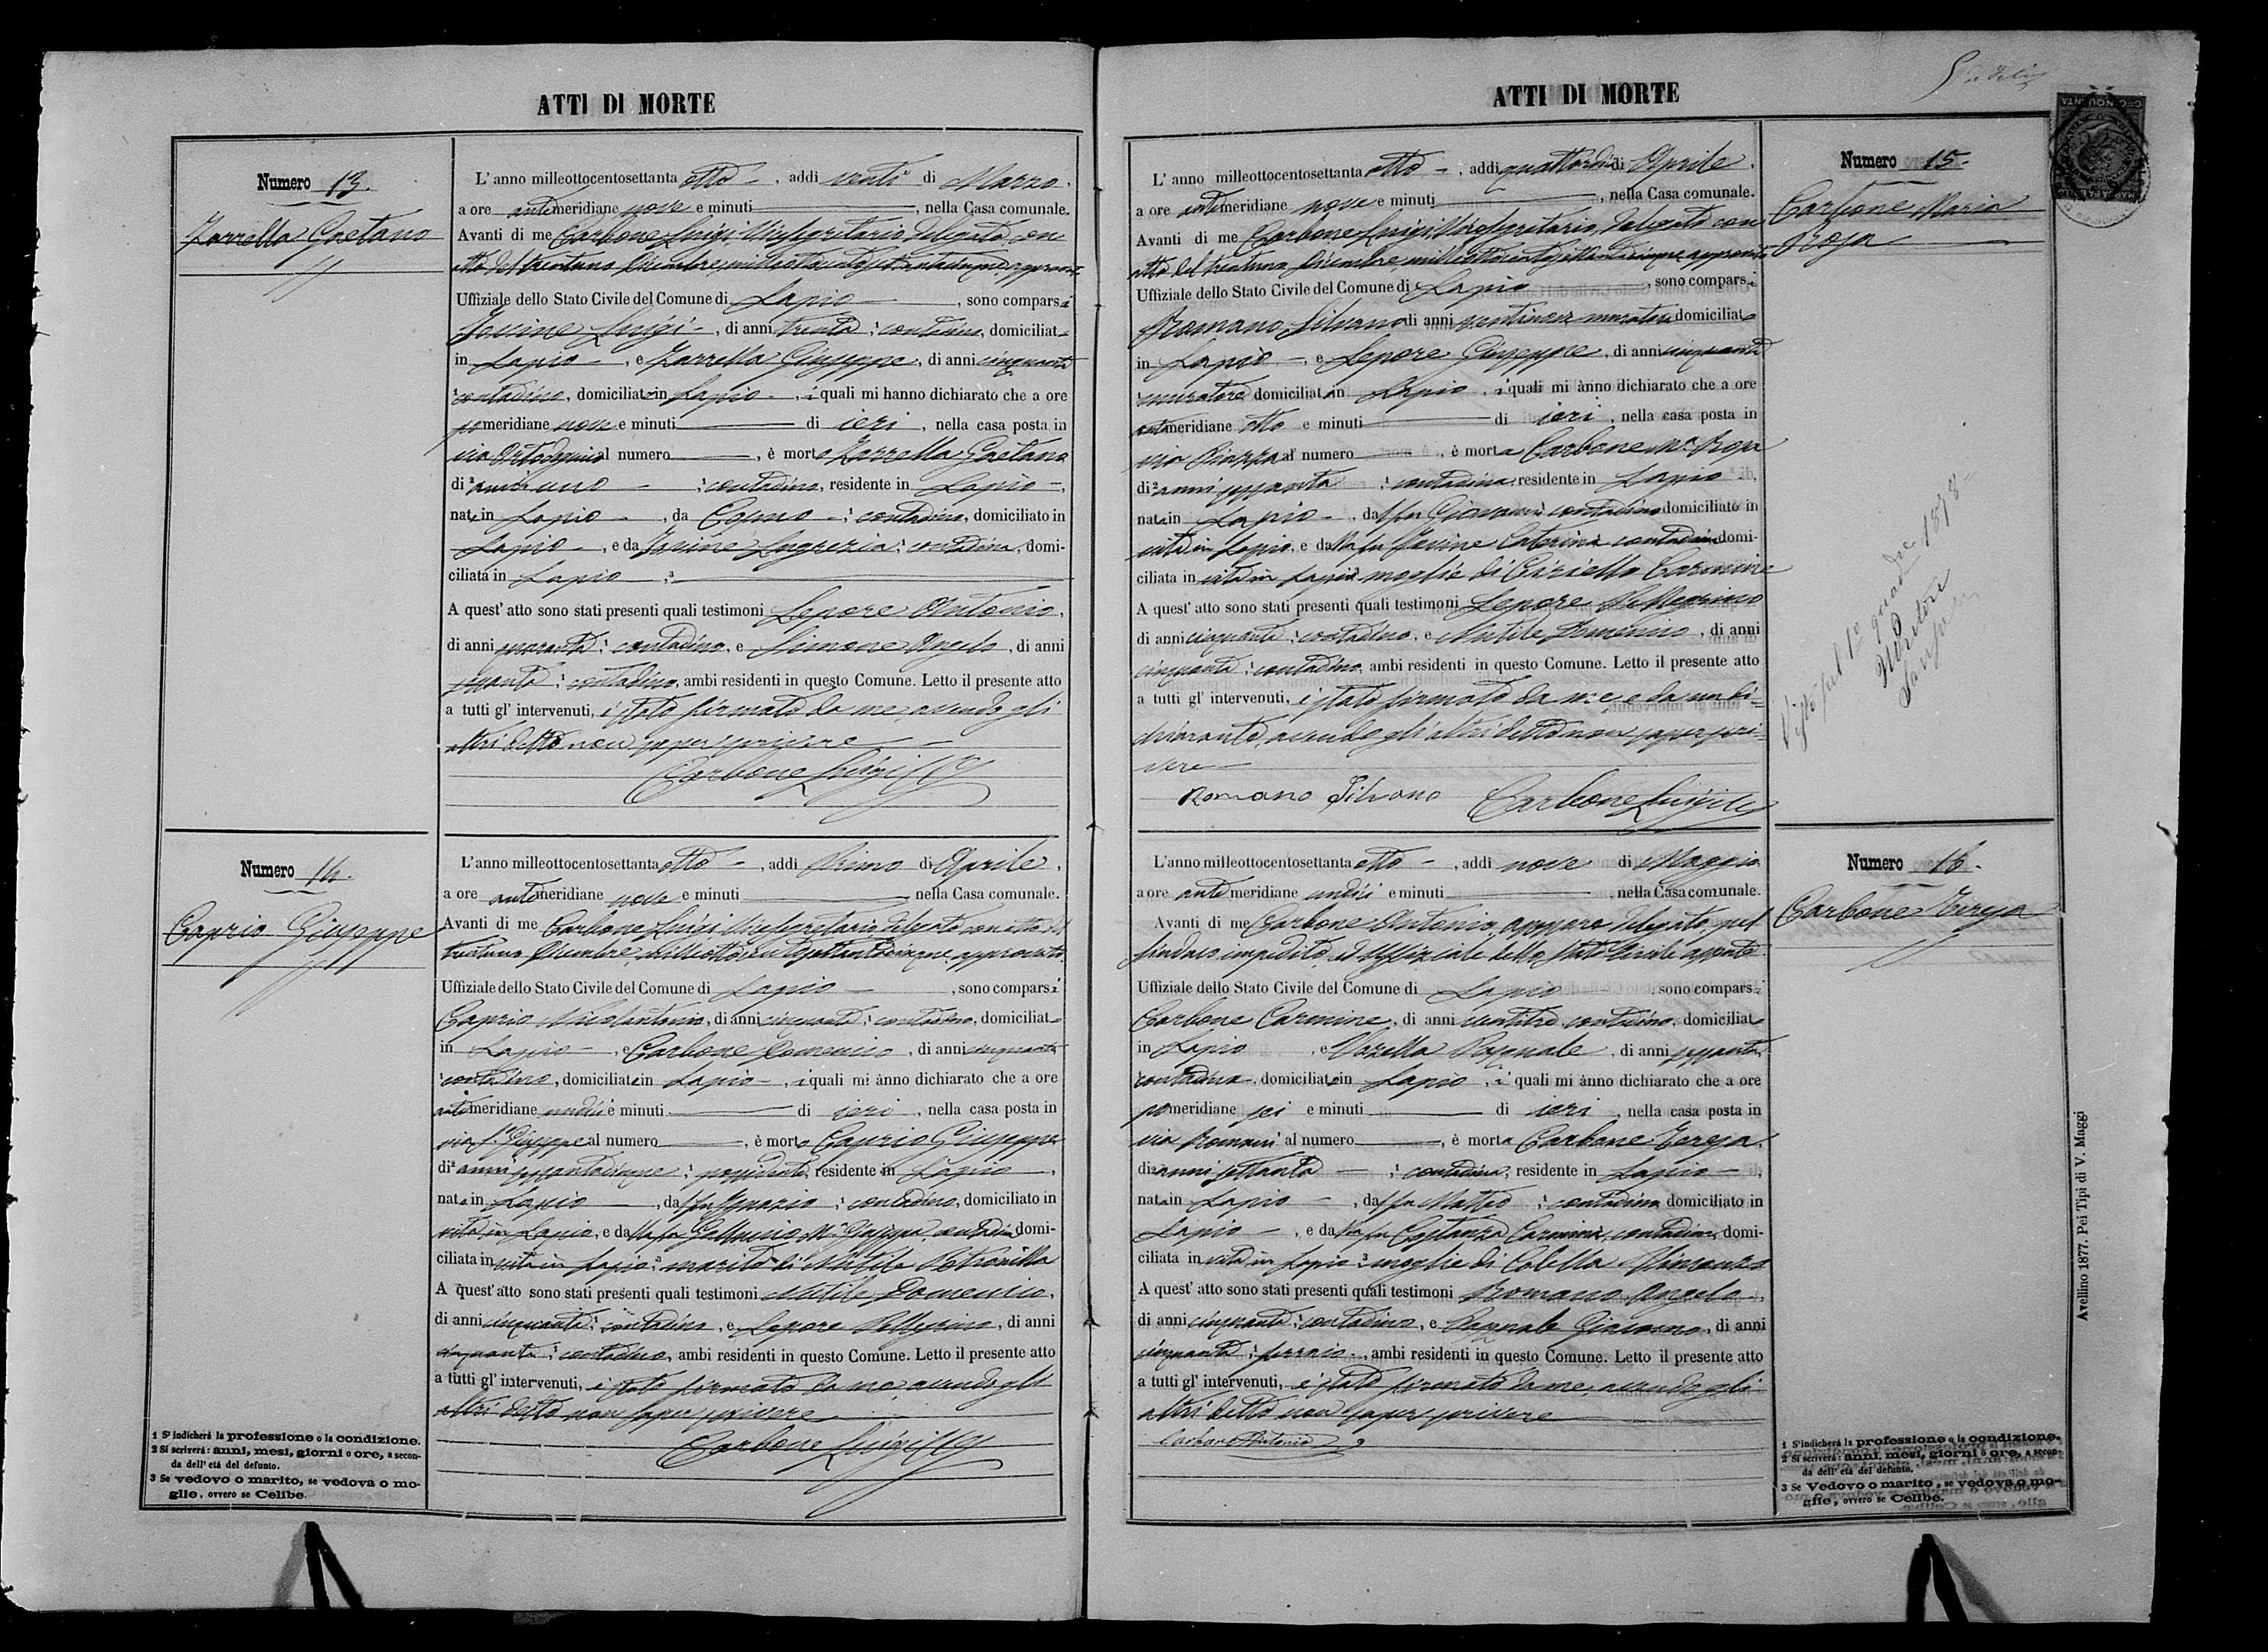 ATTI DI MORTE
Numero 13.
Zarrella Gaetano
L'anno milleottocentosettanta otto -, addi venti di Marzo,
a ore antimeridiane nove e minuti, nella Casa comunale.
Avanti di me Carbone Luigi Vicesegretario, Delegato con
atto del trentuno Dicembre milleottocentosettantacinque approvato
Uffiziale dello Stato Civile del Comune di Lapio, sono comparsi
Iossine Luigi -, di anni trenta, contadino, domiciliato
in Lapio -, e Zarrella Giuseppe, di anni cinquanta
contadino, domiciliato in Lapio -, i quali mi hanno dichiarato che a ore
pomeridiane nove e minuti di ieri, nella casa posta in
via al numero, è morto Zarrella Gaetano
di anni uno -, contadino, residente in Lapio -,
nato in Lapio -, da Cosmo -, contadino, domiciliato in
Lapio -, e da Lugrezia, contadina, domi-
ciliata in Lapio
A quest'atto sono stati presenti quali testimoni Lepore Antonio,
di anni quaranta, contadino, e Simone Angelo, di anni
contadino, ambi residenti in questo Comune. Letto il presente atto
a tutti gl'intervenuti, è stato firmato da me avendo gli
altri detto non saper scrivere
Carbone Luigi
Numero 14.
Caprio Giuseppe
L'anno milleottocentosettanta otto -, addi Primo di Aprile,
a ore antimeridiane nove e minuti nella Casa comunale.
Avanti di me Carbone Luigi Vicesegretario Delegato con atto del
trentuno Dicembre milleottocentosettantacinque approvato
Uffiziale dello Stato Civile del Comune di Lapio, sono comparsi
Caprio Nicolantonio, di anni cinquanta, contadino, domiciliato
in Lapio -, e Carbone Domenico, di anni cinquanta
contadino, domiciliato in Lapio -, i quali mi ànno dichiarato che a ore
antimeridiane undici e minuti di ieri, nella casa posta in
via S. Giuseppe al numero, è morto Caprio Giuseppe
di anni sessantacinque, possidente, residente in Lapio,
nato in Lapio, dal fu Ignazio, contadino, domiciliato in
vita in Lapio, e dalla fu M.a Giuseppa contadina domi-
ciliata in vita in Lapio, marito di Mitile Petronilla
A quest'atto sono stati presenti quali testimoni Mitile Domenico,
di anni cinquanta, contadino, e Lepore Pellegrino, di anni
cinquanta, contadino, ambi residenti in questo Comune. Letto il presente atto
a tutti gl'intervenuti, è stato firmato da me avendo gli
altri detto non saper scrivere
Carbone Luigi
1 S'indicherà la professione o la condizione.
2 Si scriverà: anni, mesi, giorni o ore, a secon-
da dell'età del defunto.
3 Se vedovo o marito, se vedova o mo-
glie, ovvero se Celibe.
ATTI DI MORTE
Numero 15.
Carbone Maria
Rosa
L'anno milleottocentosettanta otto -, addi quattordici di Aprile,
a ore antimeridiane nove e minuti, nella Casa comunale.
Avanti di me Carbone Luigi Vicesegretario, Delegato con
atto del trentuno Dicembre milleottocentosettantacinque approvato
Uffiziale dello Stato Civile del Comune di Lapio, sono comparsi
Romano Silvano di anni muratore domiciliato
in Lapio -, e Lepore Giuseppe, di anni cinquanta
muratore domiciliato in Lapio, i quali mi ànno dichiarato che a ore
antimeridiane otto e minuti di ieri, nella casa posta in
via Piazza al numero, è morta Carbone M.a Rosa
di anni sessanta, contadina, residente in Lapio,
nata in Lapio -, dal fu Giovanni contadino domiciliato in
vita in Lapio, e dalla fu Caterina contadina domi-
ciliata in vita in Lapio moglie di Ciriello Carmine
A quest'atto sono stati presenti quali testimoni Lepore Pellegrino
di anni cinquanta, contadino, e Mitile Domenico, di anni
cinquanta, contadino, ambi residenti in questo Comune. Letto il presente atto
a tutti gl'intervenuti, è stato firmato da me, e da un di-
chiarante, avendo gli altri detto non saper scri-
vere
Romano Silvano Carbone Luigi
Visto pel 1° quadre 1878
Il Pretore
Numero 16.
Carbone Teresa
L'anno milleottocentosettanta otto -, addi nove di Maggio
a ore antimeridiane undici e minuti, nella Casa comunale.
Avanti di me Carbone Antonio, assessore Delegato, pel
Sindaco impedito, ed Uffiziale dello Stato Civile assente
Uffiziale dello Stato Civile del Comune di Lapio sono comparsi
Carbone Carmine, di anni ventitre contadino, domiciliato
in Lapio, e Pasquale, di anni sessanta
contadino, domiciliato in Lapio, i quali mi ànno dichiarato che a ore
pomeridiane sei e minuti di ieri, nella casa posta in
via Romani al numero, è morta Carbone Teresa,
di anni settanta -, contadina, residente in Lapio -,
nata in Lapio -, dal fu Matteo, contadino domiciliato in
Lapio -, e dalla fu Costanza Carmina, contadina, domi-
ciliata in vita in Lapio, moglie di Colella
A quest'atto sono stati presenti quali testimoni Romano Angelo,
di anni cinquanta, contadino, e Giacomo, di anni
cinquanta, ferraio -, ambi residenti in questo Comune. Letto il presente atto
a tutti gl'intervenuti, è stato firmato da me, avendo gli
altri detto non saper scrivere
Carbone Antonio
1 S'indicherà la professione o la condizione.
2 Si scriverà: anni, mesi, giorni o ore, a secon-
da dell'età del defunto.
3 Se Vedovo o marito, se vedova o mo-
glie, ovvero se Celibe.
Avellino 1877. Pei Tipi di V. Maggi